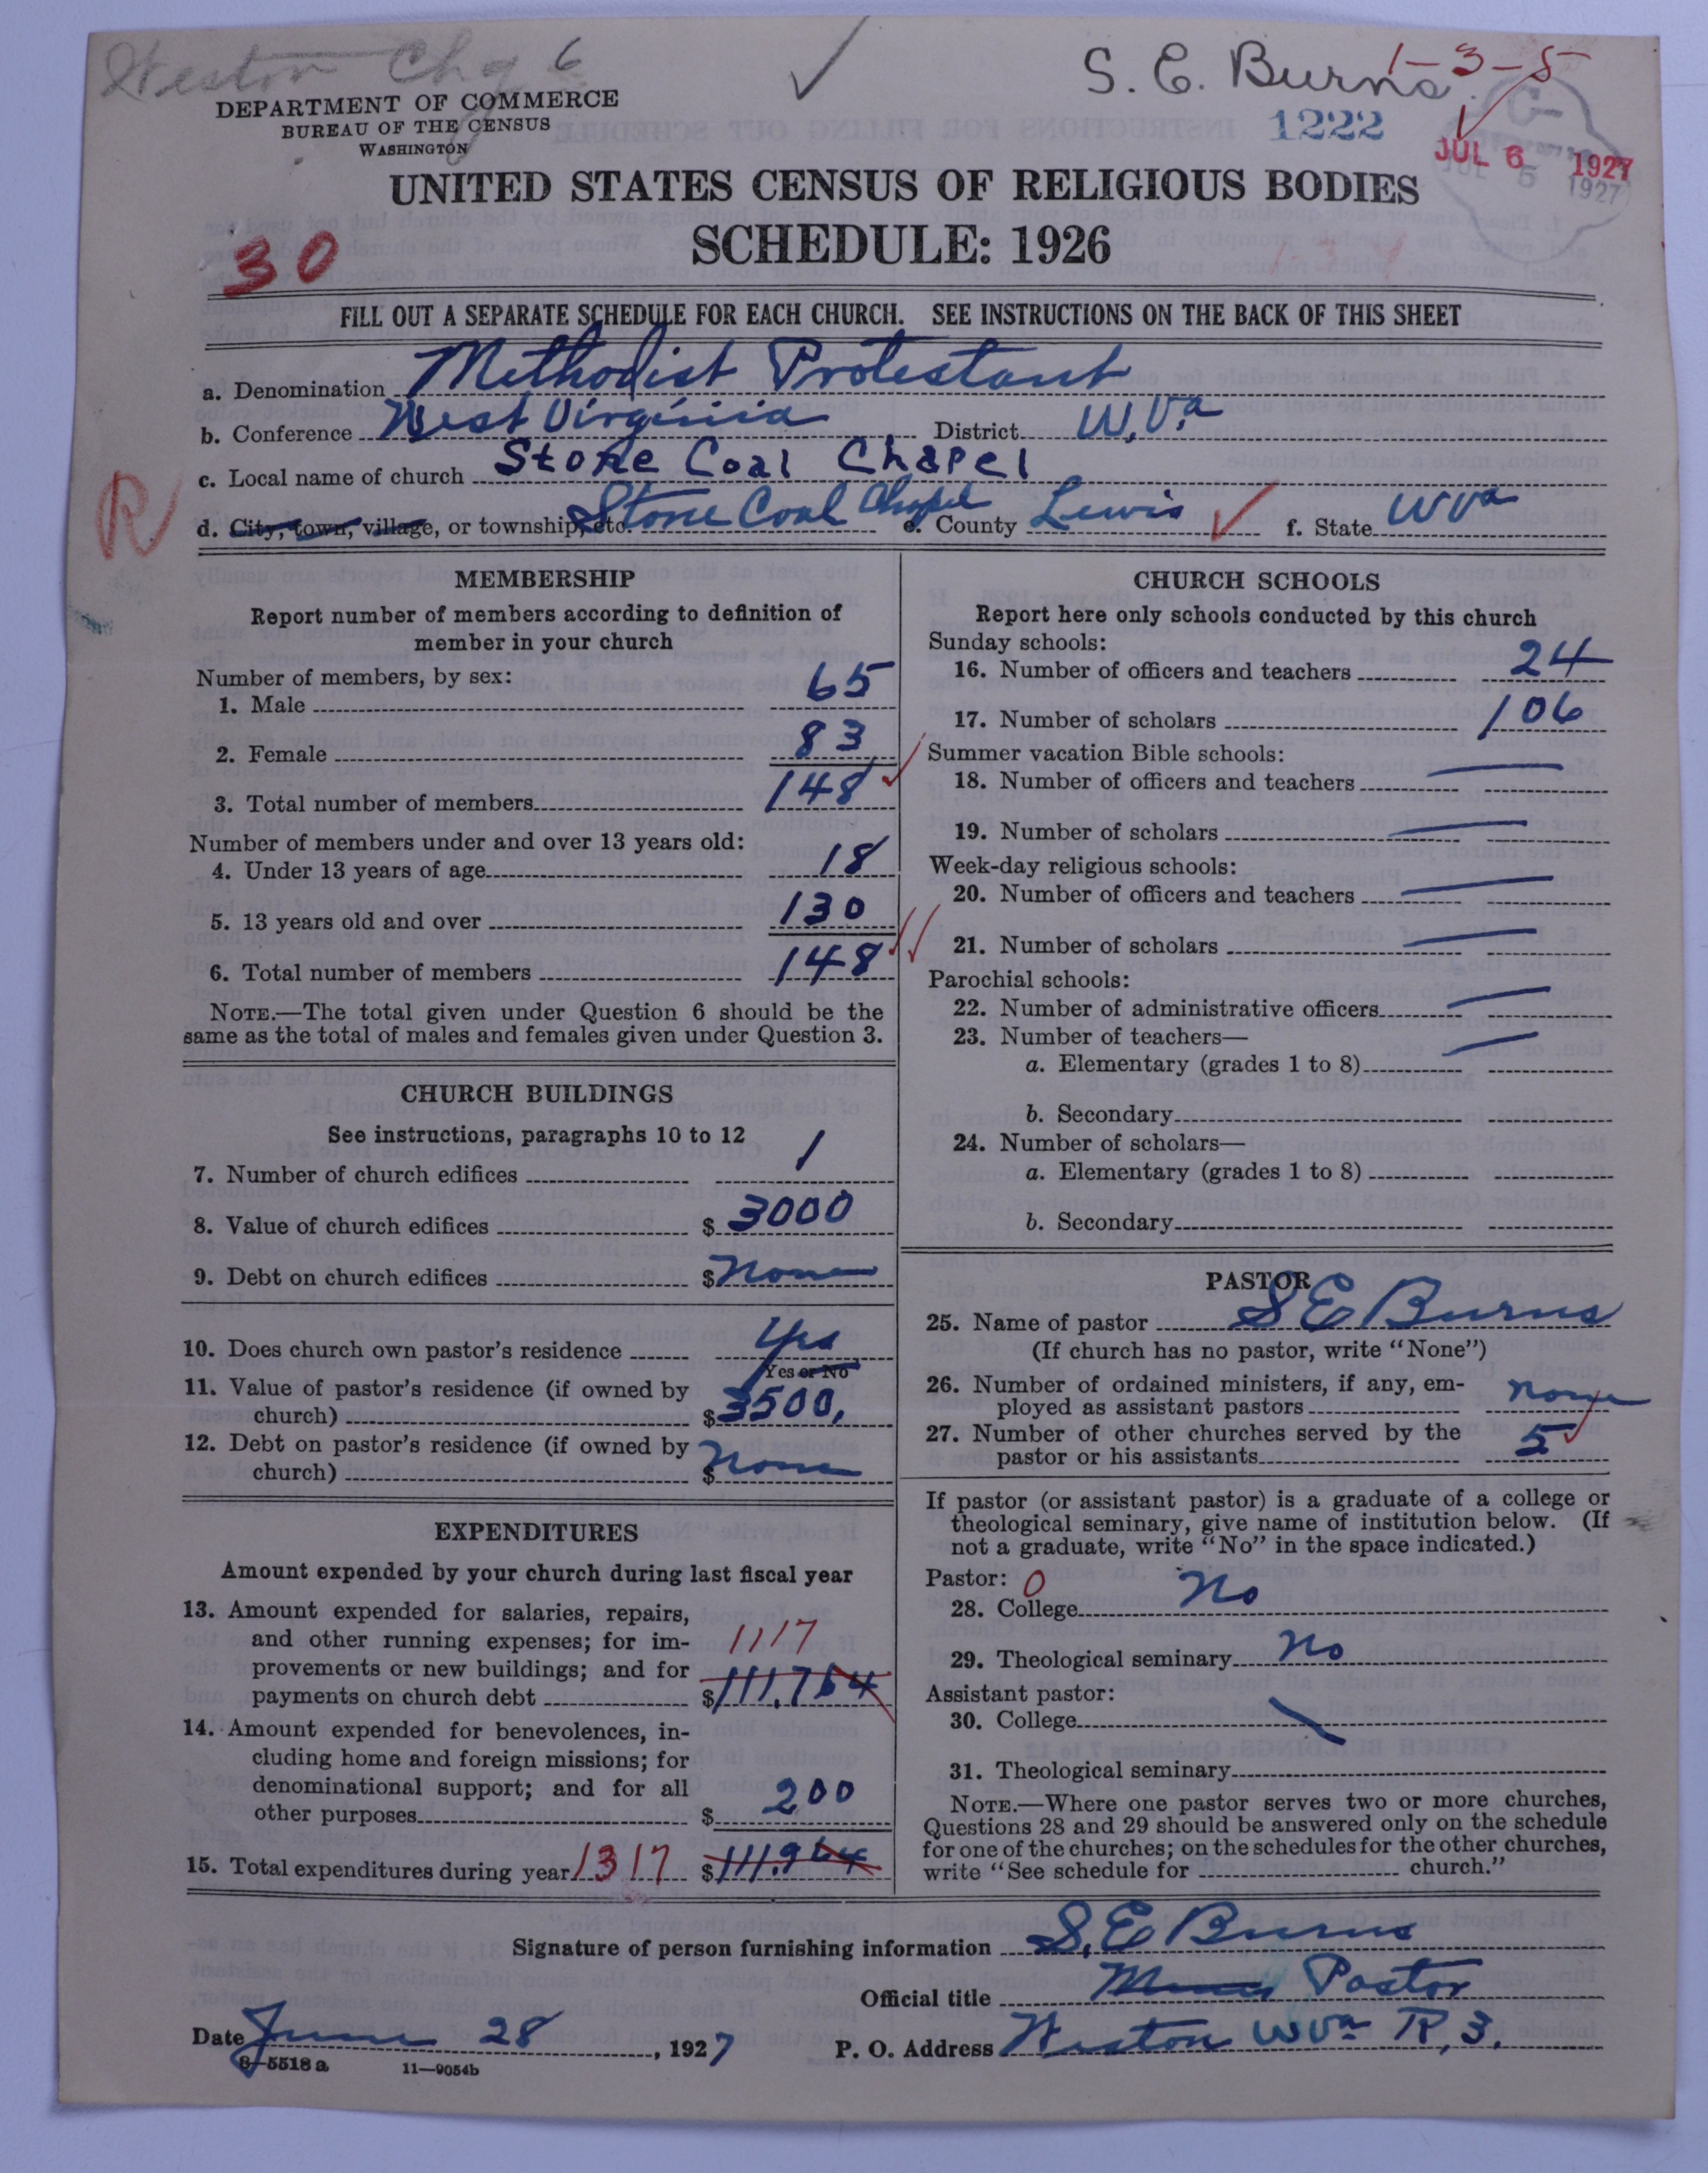 Weston Chg 6
S. E. Burns 1-3-5
DEPARTMENT OF COMMERCE
BUREAU OF THE CENSUS
WASHINGTON
1222
JUL 6 1927
JUL 5 1927
UNITED STATES CENSUS OF RELIGIOUS BODIES
SCHEDULE: 1926
30
FILL OUT A SEPARATE SCHEDULE FOR EACH CHURCH. SEE INSTRUCTIONS ON THE BACK OF THIS SHEET
a. Denomination Methodist Protestant
b. Conference West Virginia District W. Va
c. Local name of church Stone Coal Chapel
R
d. City, town, village, or township, etc. Stone Coal Chapel e. County Lewis f. State W Va
MEMBERSHIP
Report number of members according to definition of
member in your church
Number of members, by sex:
1. Male 65
2. Female 83
3. Total number of members 148
Number of members under and over 13 years old:
4. Under 13 years of age 18
5. 13 years old and over 130
6. Total number of members 148
NOTE.—The total given under Question 6 should be the
same as the total of males and females given under Question 3.
CHURCH BUILDINGS
See instructions, paragraphs 10 to 12
7. Number of church edifices 1
8. Value of church edifices $ 3000
9. Debt on church edifices $ none
10. Does church own pastor's residence Yes
Yes or No
11. Value of pastor's residence (if owned by
church) $ 3500.
12. Debt on pastor's residence (if owned by
church) $ none
EXPENDITURES
Amount expended by your church during last fiscal year
13. Amount expended for salaries, repairs,
and other running expenses; for im-
1117
provements or new buildings; and for
payments on church debt $ 111.764
14. Amount expended for benevolences, in-
cluding home and foreign missions; for
denominational support; and for all
other purposes $ 200
15. Total expenditures during year 1317 $ 111.964
CHURCH SCHOOLS
Report here only schools conducted by this church
Sunday schools:
16. Number of officers and teachers 24
17. Number of scholars 106
Summer vacation Bible schools:
18. Number of officers and teachers
19. Number of scholars
Week-day religious schools:
20. Number of officers and teachers
21. Number of scholars
Parochial schools:
22. Number of administrative officers
23. Number of teachers—
a. Elementary (grades 1 to 8)
b. Secondary
24. Number of scholars—
a. Elementary (grades 1 to 8)
b. Secondary
PASTOR
25. Name of pastor S E Burns
(If church has no pastor, write "None")
26. Number of ordained ministers, if any, em-
ployed as assistant pastors none
27. Number of other churches served by the
pastor or his assistants 5
If pastor (or assistant pastor) is a graduate of a college or
theological seminary, give name of institution below. (If
not a graduate, write "No" in the space indicated.)
Pastor: 0
28. College No
29. Theological seminary No
Assistant pastor:
30. College
31. Theological seminary
NOTE.—Where one pastor serves two or more churches,
Questions 28 and 29 should be answered only on the schedule
for one of the churches; on the schedules for the other churches,
write "See schedule for church."
Signature of person furnishing information S. E Burns
Official title Pastor
Date June 28, 1927 P. O. Address Weston W Va R, 3.
8—5518 a 11—9054b